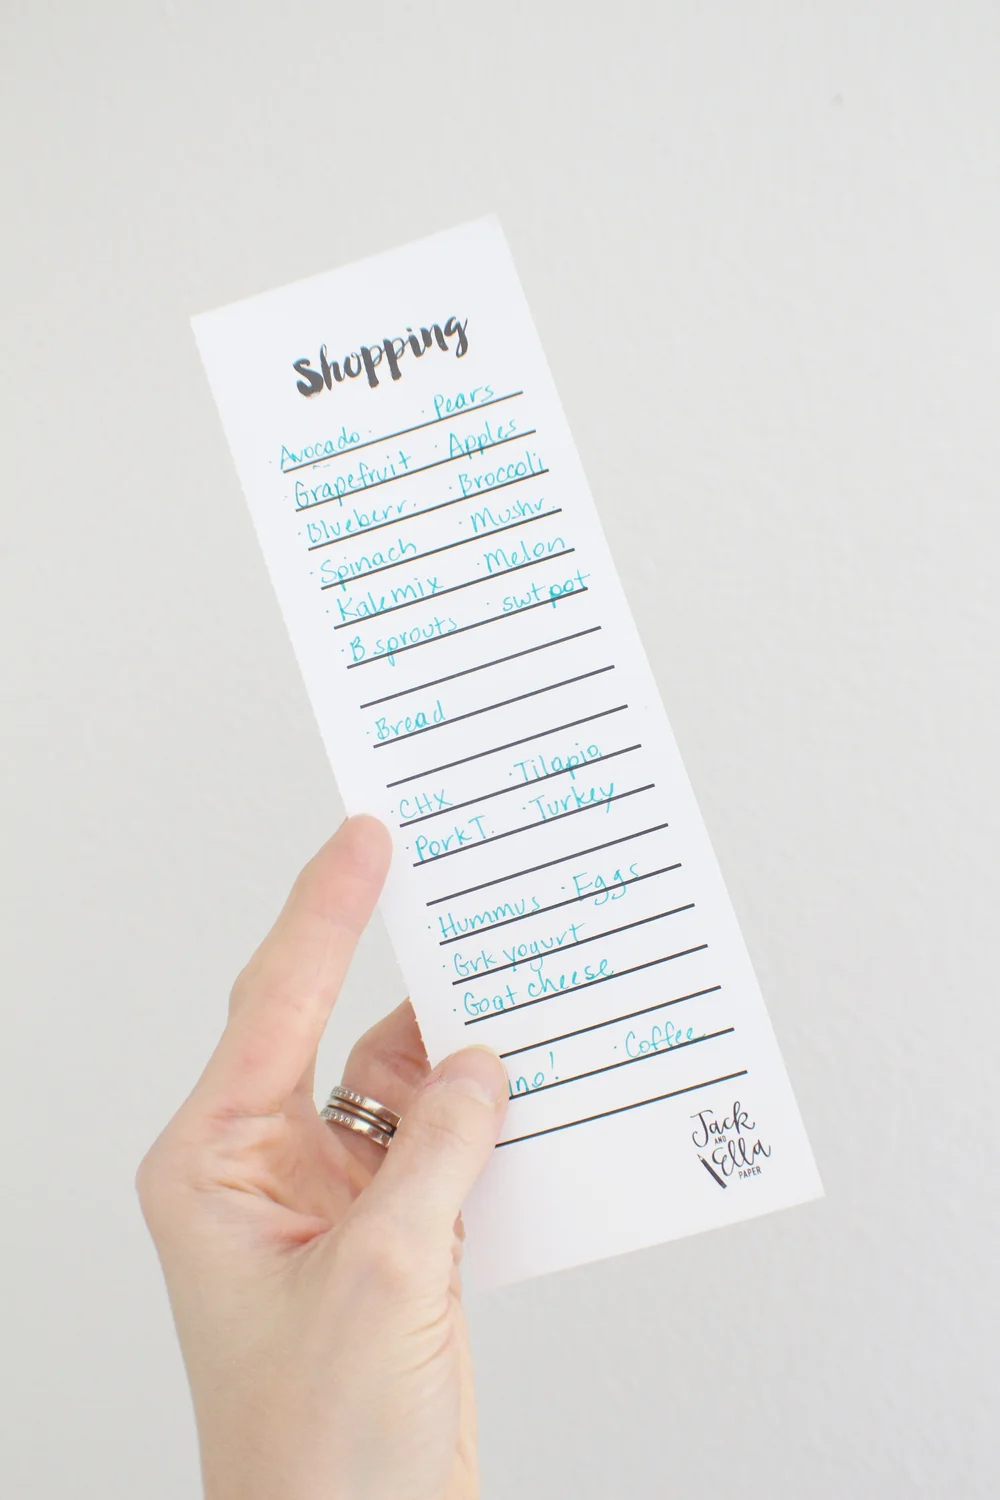 Shopping
· Avocado · · Pears
· Grapefruit · Apples
· Blueberr. · Broccoli
· Spinach · Mushr.
· Kalemix · Melon
· B sprouts · swt pot
· Bread
· CHX · Tilapia
· Pork T. · Turkey
· Hummus · Eggs
· Grk yogurt
· Goat cheese
· Coffee
Jack
AND
Ella
PAPER